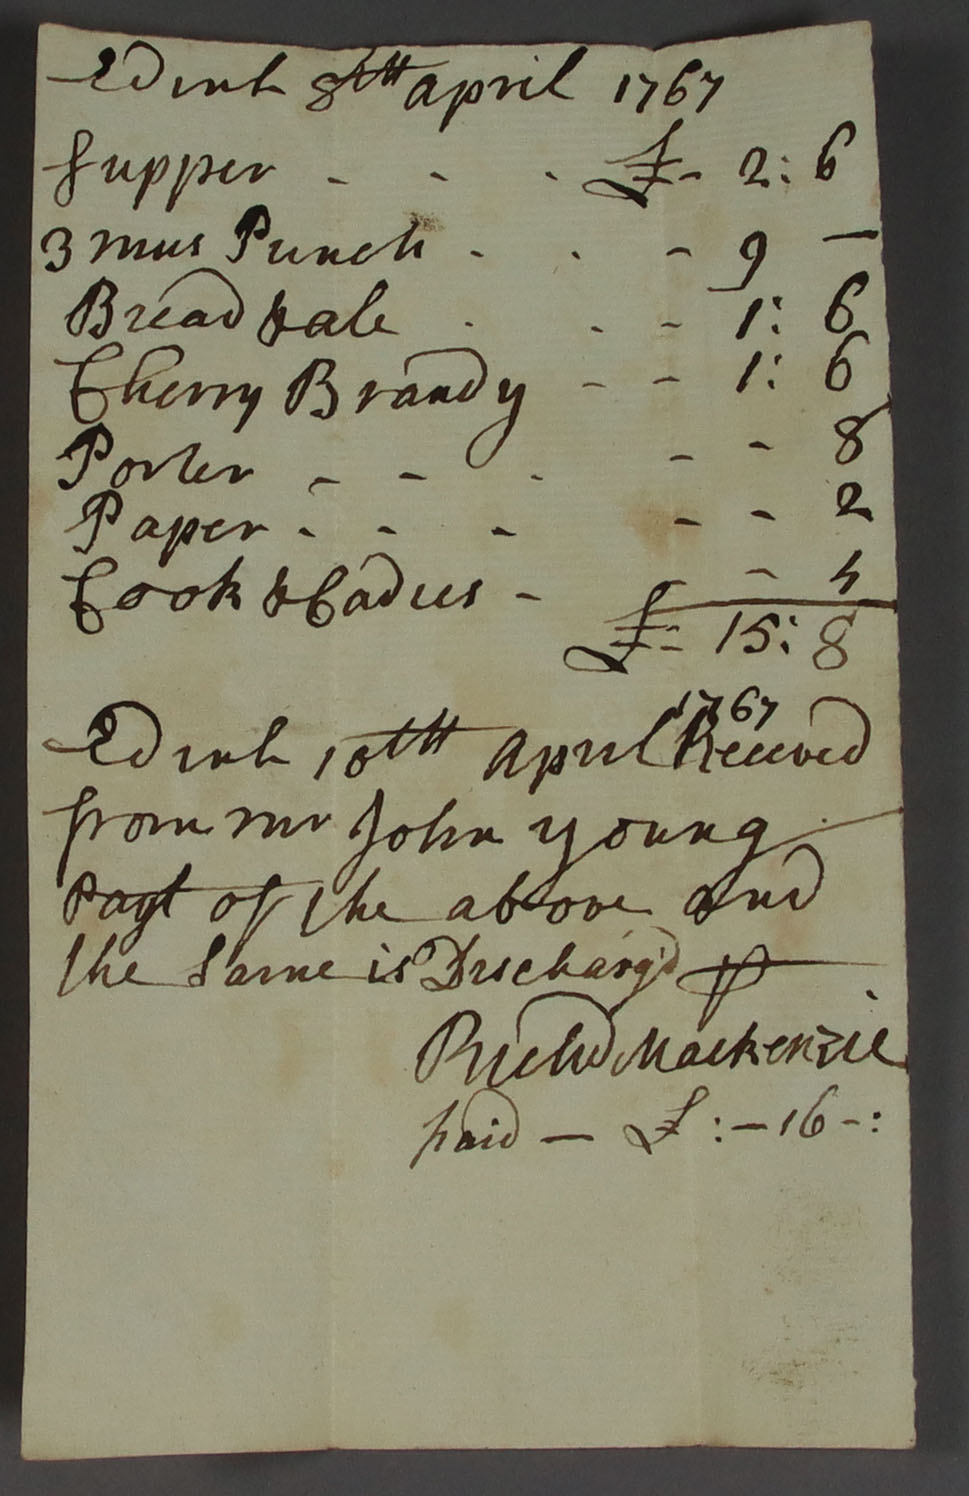 Edinb 8th april 1767
Supper - - - £ - 2: 6
3 mus Punch - - - 9 —
Bread & ale - - - 1: 6
Cherry Brandy - - 1: 6
Porter - - - - - 8
Paper - - - - - 2
Cook & Cadies - - 4
£ - 15: 8
Edinb 10th April 1767 Received
from mr John Young
Payt of the above and
the Same is Discharg'd p
Richd Mackenzie
paid — £ : — 16 - :